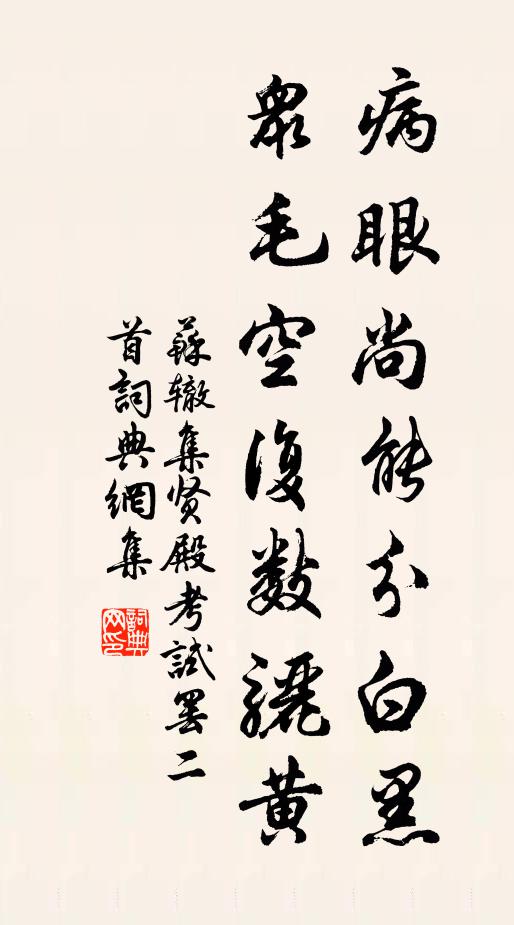 病眼尚能分白黑
眾毛空復數驪黃
蘇辙集贤殿考試罢二
首詞典網集
詞典
网印